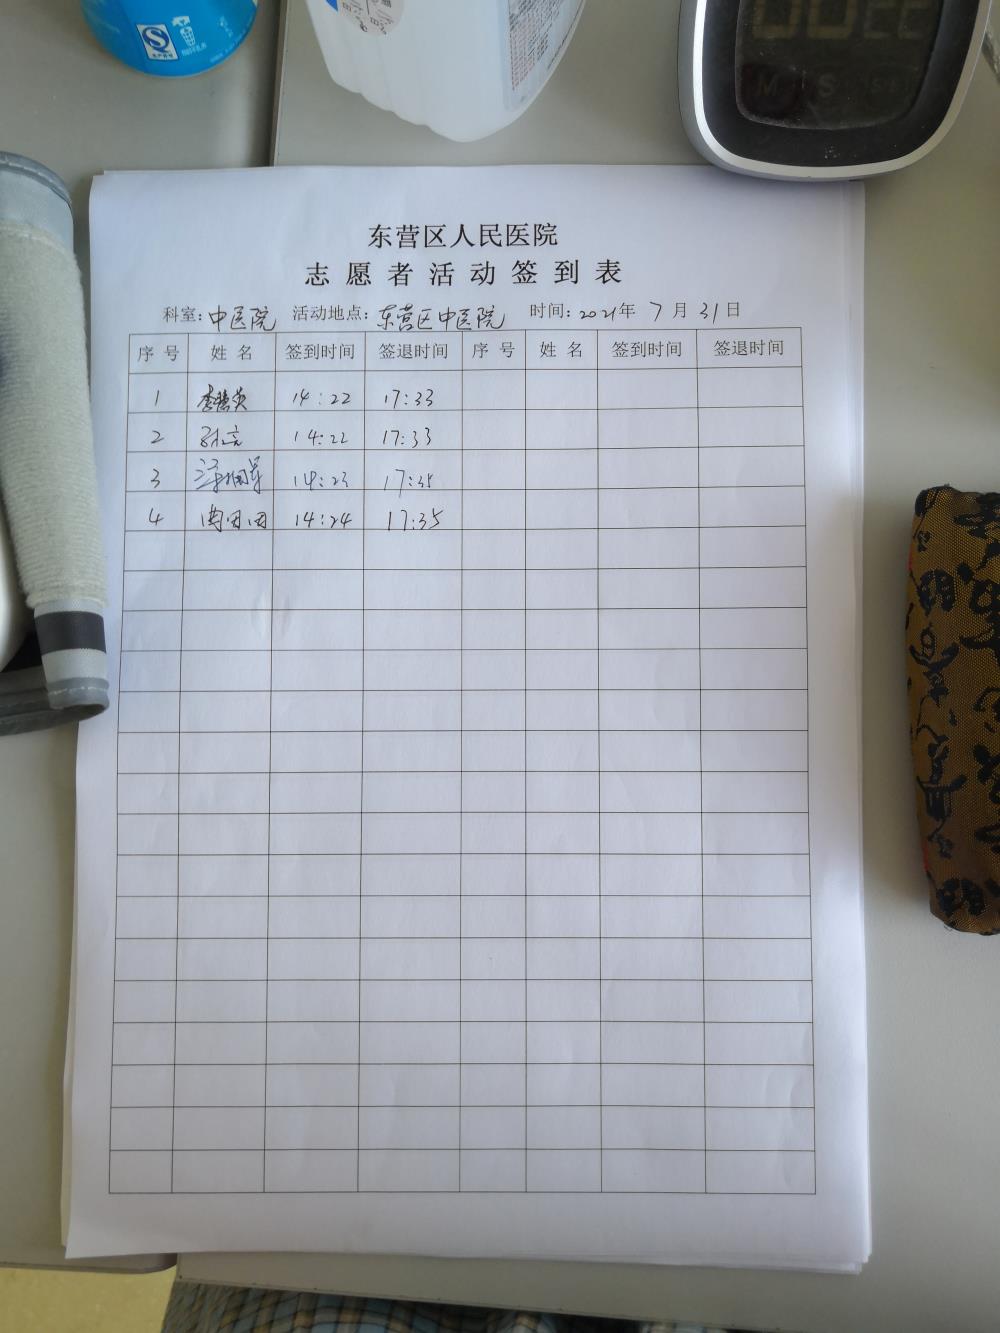 东营区人民医院
志愿者活动签到表
科室:中医院 活动地点:东营区中医院 时间:2021年7月31日
序号 姓名 签到时间 签退时间 序号 姓名 签到时间 签退时间
1 李慧英 14:22 17:33
2 14:22 17:33
3 14:23 17:35
4 14:24 17:35
M S